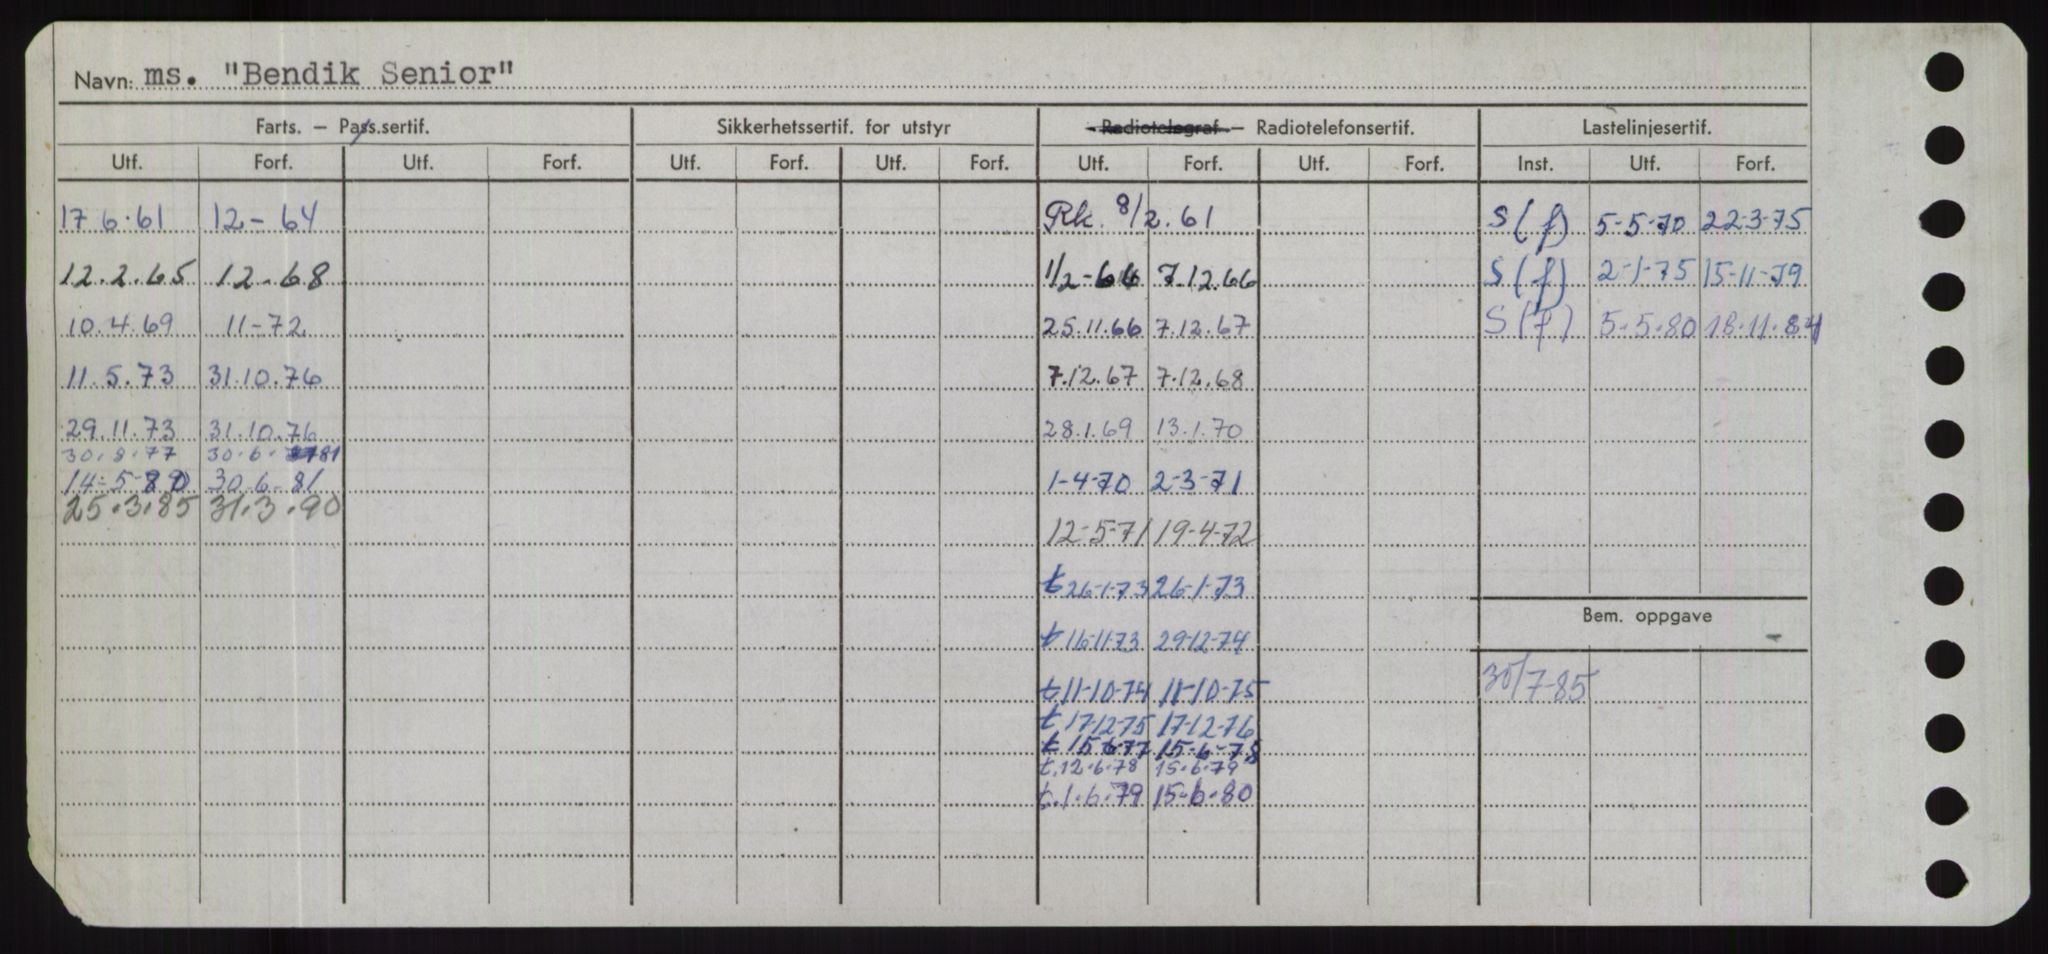 Navn: ms. "Bendik Senior"
Farts. – Pass.sertif. Sikkerhetssertif. for utstyr Radiotelegraf – Radiotelefonsertif. Lastelinjesertif.
Utf. Forf. Utf. Forf. Utf. Forf. Utf. Forf. Utf. Forf. Utf. Forf. Inst. Utf. Forf.
17.6.61 12-64 Rk. 8/2.61 S(f) 5-5-70 22-3-75
12.2.65 12.68 1/2-66 7.12.66 S(f) 2-1-75 15-11-79
10.4.69 11-72 25.11.66 7.12.67 S(f) 5-5-80 18.11.84
11.5.73 31.10.76 7.12.67 7.12.68
29.11.73 31.10.76 28.1.69 13.1.70
30.8.77 30.6.81
14-5-80 30-6-81 1-4-70 2-3-71
25.3.85 31.3.90
12-5-71 19-4-72
t 26-1-73 26-1-73
Bem. oppgave
t 16-11-73 29-12-74
t 11-10-74 11-10-75 30/7-85
t 17-12-75 17-12-76
t 15-6-77 15-6-78
t.12.6.78 15.6.79
t.1.6.79 15-6-80